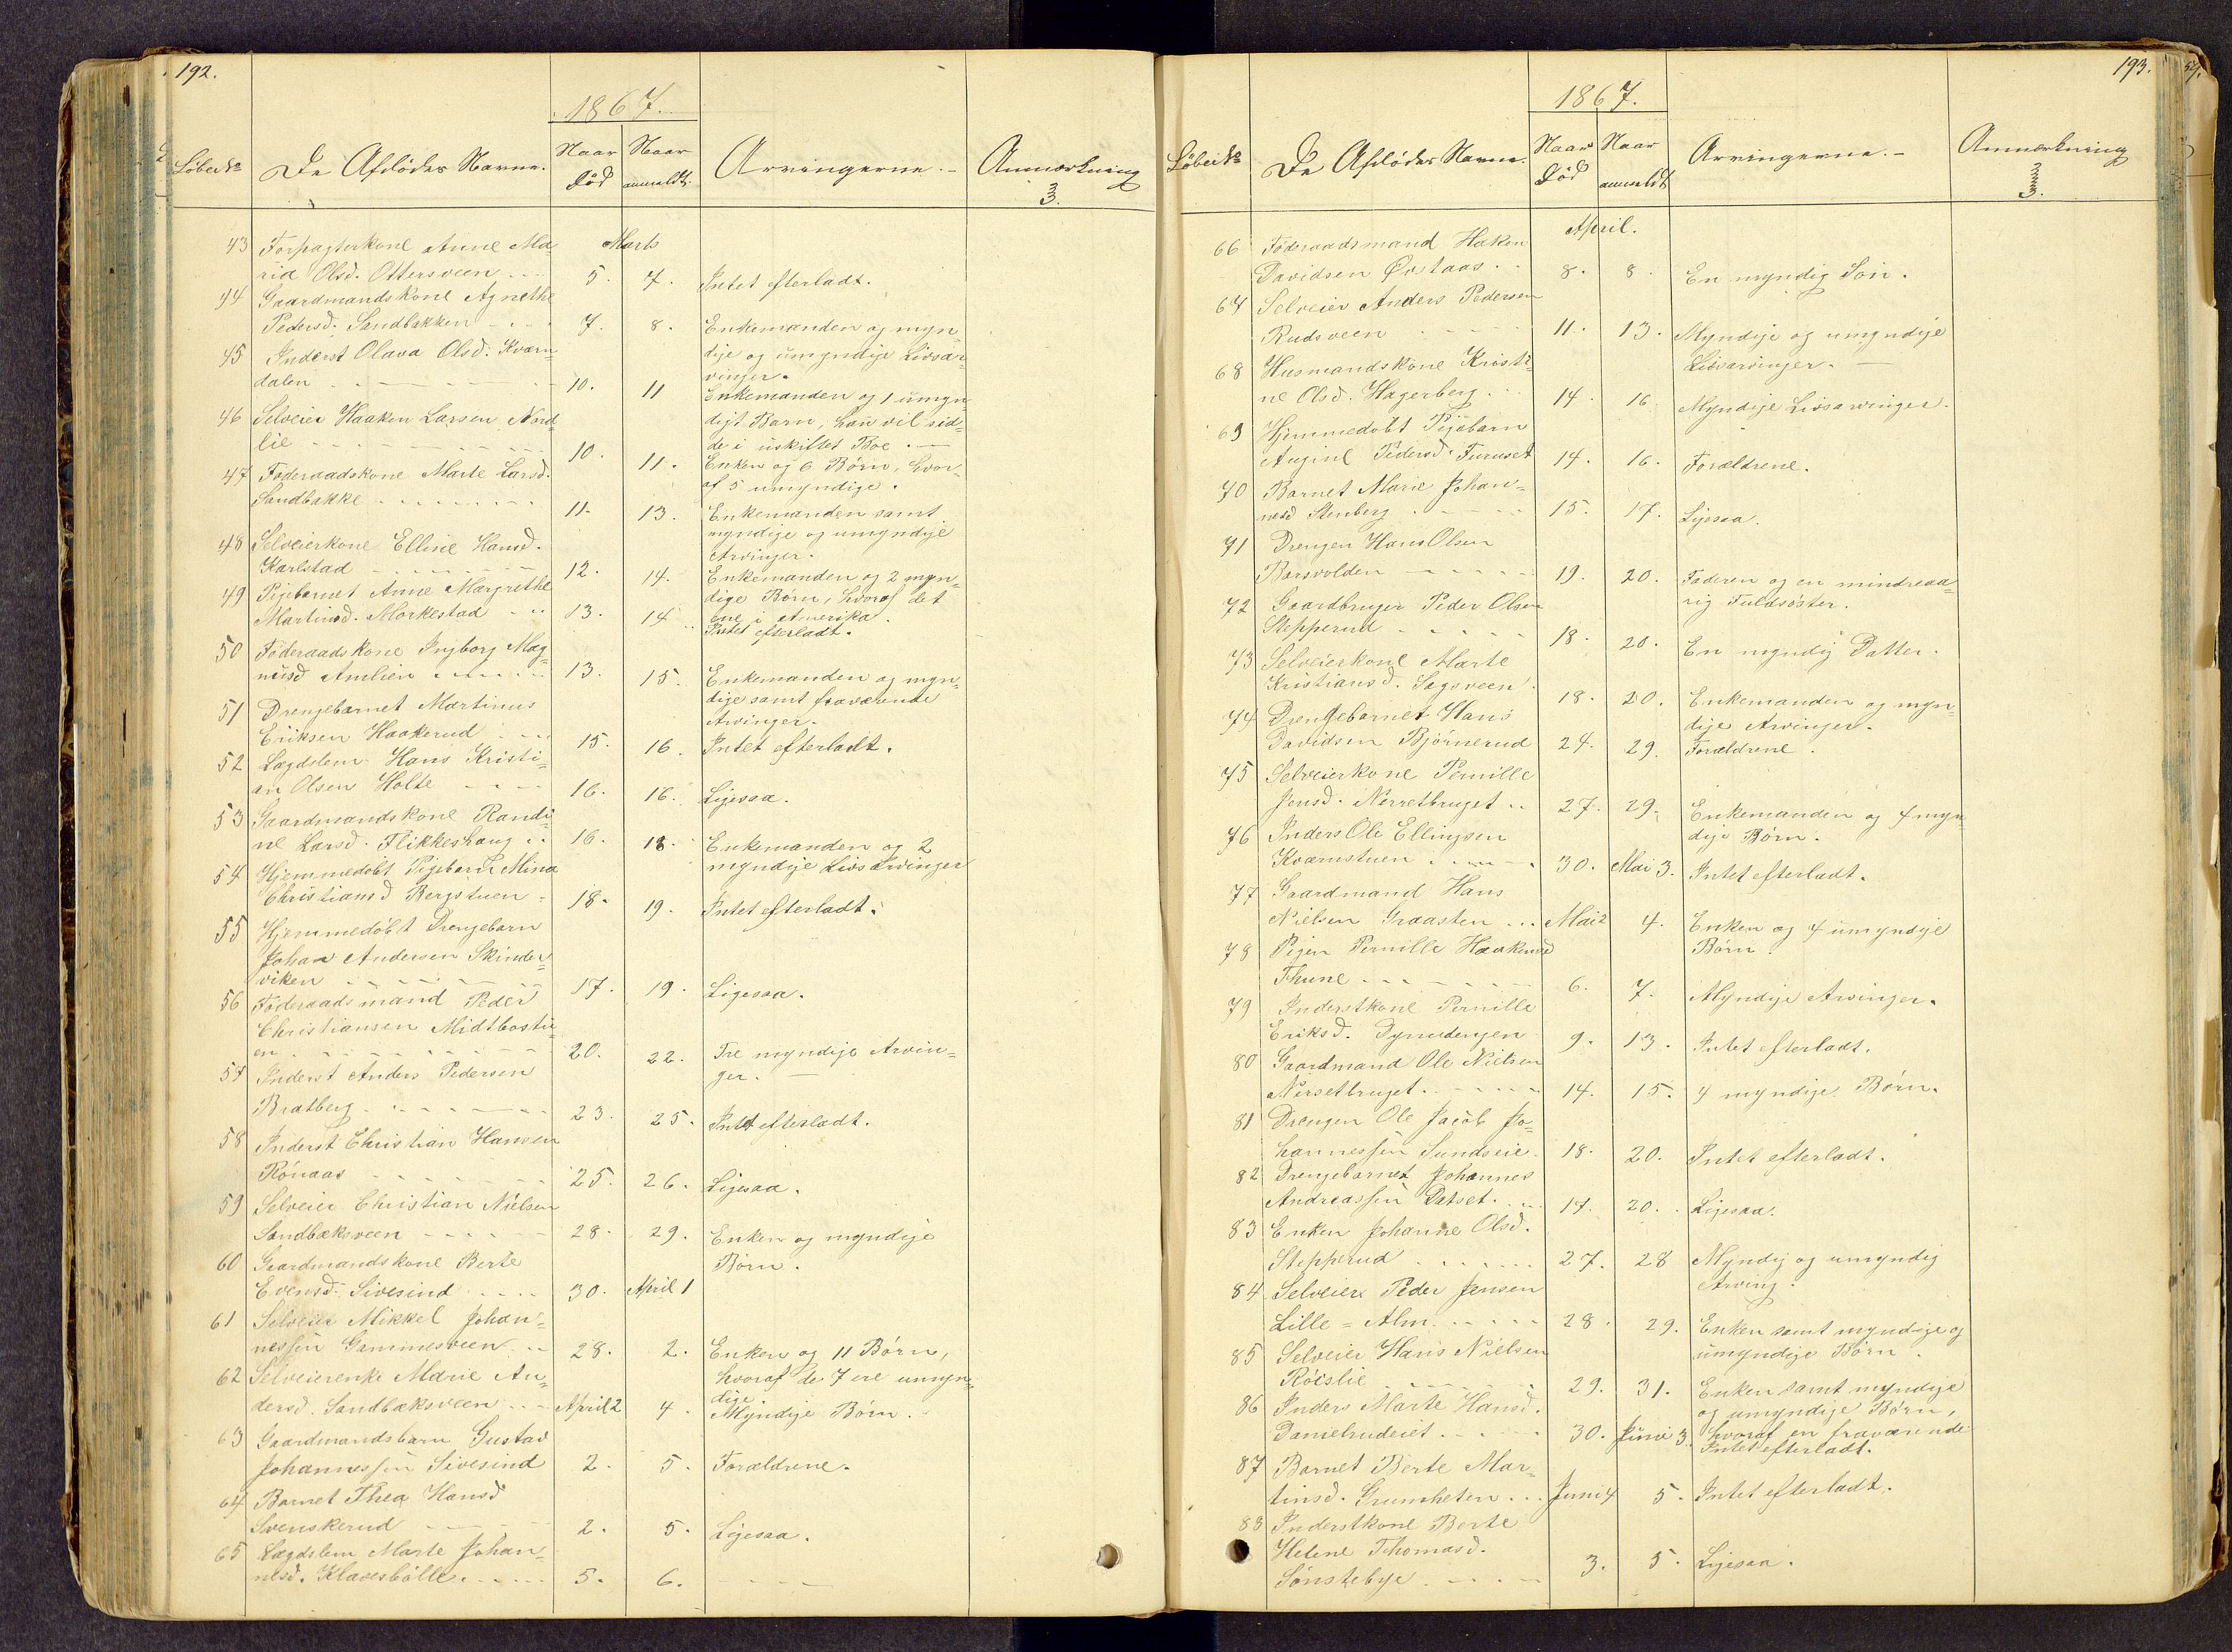 192.
1867.
Löbe No De Afdödes Navne. Naar Död Naar anmeldt. Arvingerne. - Anmærkning
3.
Marts
43 Forpagterkone Anne Ma=
ria Olsd. Ottersveen 5. 7. Intet efterladt.
44 Gaardmandskone Agnethe
Pedersd. Sandbakken 7. 8. Enkemanden og myn=
dige og umyndige Livsar=
vinger.
45 Inderst Olava Olsd. Kværn=
dalen 10. 11 Enkemanden og 1 umyn=
digt Barn, han vil sid=
de i uskiftet Boe.
46 Selveier Haaken Larsen Nord=
lie 10. 11. Enken og 6 Börn, hvor=
af 5 umyndige.
47 Föderaadskone Marte Larsd.
Sandbakke 11. 13. Enkemanden samt
myndige og umyndige
Arvinger.
48 Selveierkone Elline Hansd.
Karlstad 12. 14. Enkemanden og 2 myn=
dige Börn, hvoraf det
Ene i Amerika.
49 Pigebarnet Anne Margrethe
Martinsd. Morkestad 13. 14 Intet efterladt.
50 Föderaadskone Ingborg Mag=
nusd Amlien 13. 15. Enkemanden og myn=
dige samt fraværende
Arvinger.
51 Drengebarnet Martinus
Eriksen Haakerud 15. 16. Intet efterladt.
52 Lægdslem Hans Kristi=
an Olsen Holte 16. 16. Ligesaa.
53 Gaardmandskone Randi=
ne Larsd. Flikkeshaug 16. 18. Enkemanden og 2
myndige Livsarvinger
54 Hjemmedöbt Pigebarn Mina
Christiansd Bergstuen 18. 19. Intet efterladt.
55 Hjemmedöbt Drengebarn
Johan Andersen Skinder=
viken 17. 19. Ligesaa.
56 Föderaadsmand Peder
Christiansen Midtbostu=
en 20. 22. Tre myndige Arvin=
ger.
57 Inderst Anders Pedersen
Bratberg 23. 25. Intet efterladt.
58 Inderst Christian Hansen
Rönaas 25. 26. Ligesaa.
59 Selveier Christian Nielsen
Sandbæksveen 28. 29. Enken og myndige
Börn.
60 Gaardmandskone Berte
Evensd. Sivesind 30. April 1
61 Selveier Mikkel Johan=
nessen Gammesveen 28. 2. Enken og 11 Börn,
hvoraf de 7 ere umyn=
dige.
62 Selveierenke Marie An=
dersd. Sandbæksveen April 2 4. Myndige Börn.
63 Gaardmandsbarn Gustav
Johannessen Sivesind 2. 5. Forældrene.
64 Barnet Thea Hansd
Svenskerud 2. 5. Ligesaa.
65 Lægdslem Marte Johan=
nesd. Klæsbölle 5. 6.
193.
1867.
Löbe No De Afdödes Navne. Naar Död Naar anmeldt Arvingerne. - Anmærkning
3.
April.
66 Föderaadsmand Haken
Davidsen Øvstaas 8. 8. En myndig Sön.
67 Selveier Anders Pedersen
Rudsveen 11. 13. Myndige og umyndige
Livsarvinger.
68 Husmandskone Kristi=
ne Olsd. Hagerberg 14. 16. Myndige Livsarvinger.
69 Hjemmedöbt Pigebarn
Augine Pedersd. Furuset 14. 16. Forældrene.
70 Barnet Marie Johan=
nesd Stenberg 15. 17. Ligesaa.
71 Drengen Hans Olsen
Barsvolden 19. 20. Faderen og en mindreaa=
rig Fuldsöster.
72 Gaardbruger Peder Olsen
Stepperud 18. 20. En myndig Datter.
73 Selveierkone Marte
Kristiansd. Sagsveen 18. 20. Enkemanden og myn=
dige Arvinger.
74 Drengebarnet Hans
Davidsen Björnerud 24. 29. Forældrene.
75 Selveierkone Pernille
Jensd. Nerretbruget 27. 29. Enkemanden og 4 myn=
dige Börn.
76 Inders Ole Ellingsen
Kværnstuen 30. Mai 3. Intet efterladt.
77 Gaardmand Hans
Nielsen Graasten Mai 2 4. Enken og 4 umyndige
Börn.
78 Pigen Pernille Haakensd
Thune 6. 7. Myndige Arvinger.
79 Inderstkone Pernille
Eriksd. Dynudengen 9. 13. Intet efterladt.
80 Gaardmand Ole Nielsen
Nersetbruget 14. 15. 4 myndige Börn.
81 Drengen Ole Jacob Jo=
hannessen Sundseie 18. 20. Intet efterladt.
82 Drengebarnet Johannes
Andreassen Datset 17. 20. Ligesaa.
83 Enken Johanne Olsd.
Stepperud 27. 28 Myndig og umyndig
Arving.
84 Selveier Peder Jensen
Lille=Alm 28. 29. Enken samt myndige og
umyndige Börn.
85 Selveier Hans Nielsen
Röislie 29. 31. Enken samt myndige
og umyndige Börn,
hvoraf en fraværende
86 Inders Marte Hansd.
Danielrudeiet 30. Juni 3. Intet efterladt.
87 Barnet Berte Mar=
tinsd. Grumheten Juni 4 5. Intet efterladt.
88 Inderstkone Berte
Helene Thomasd.
Sönstebye 3. 5. Ligesaa.